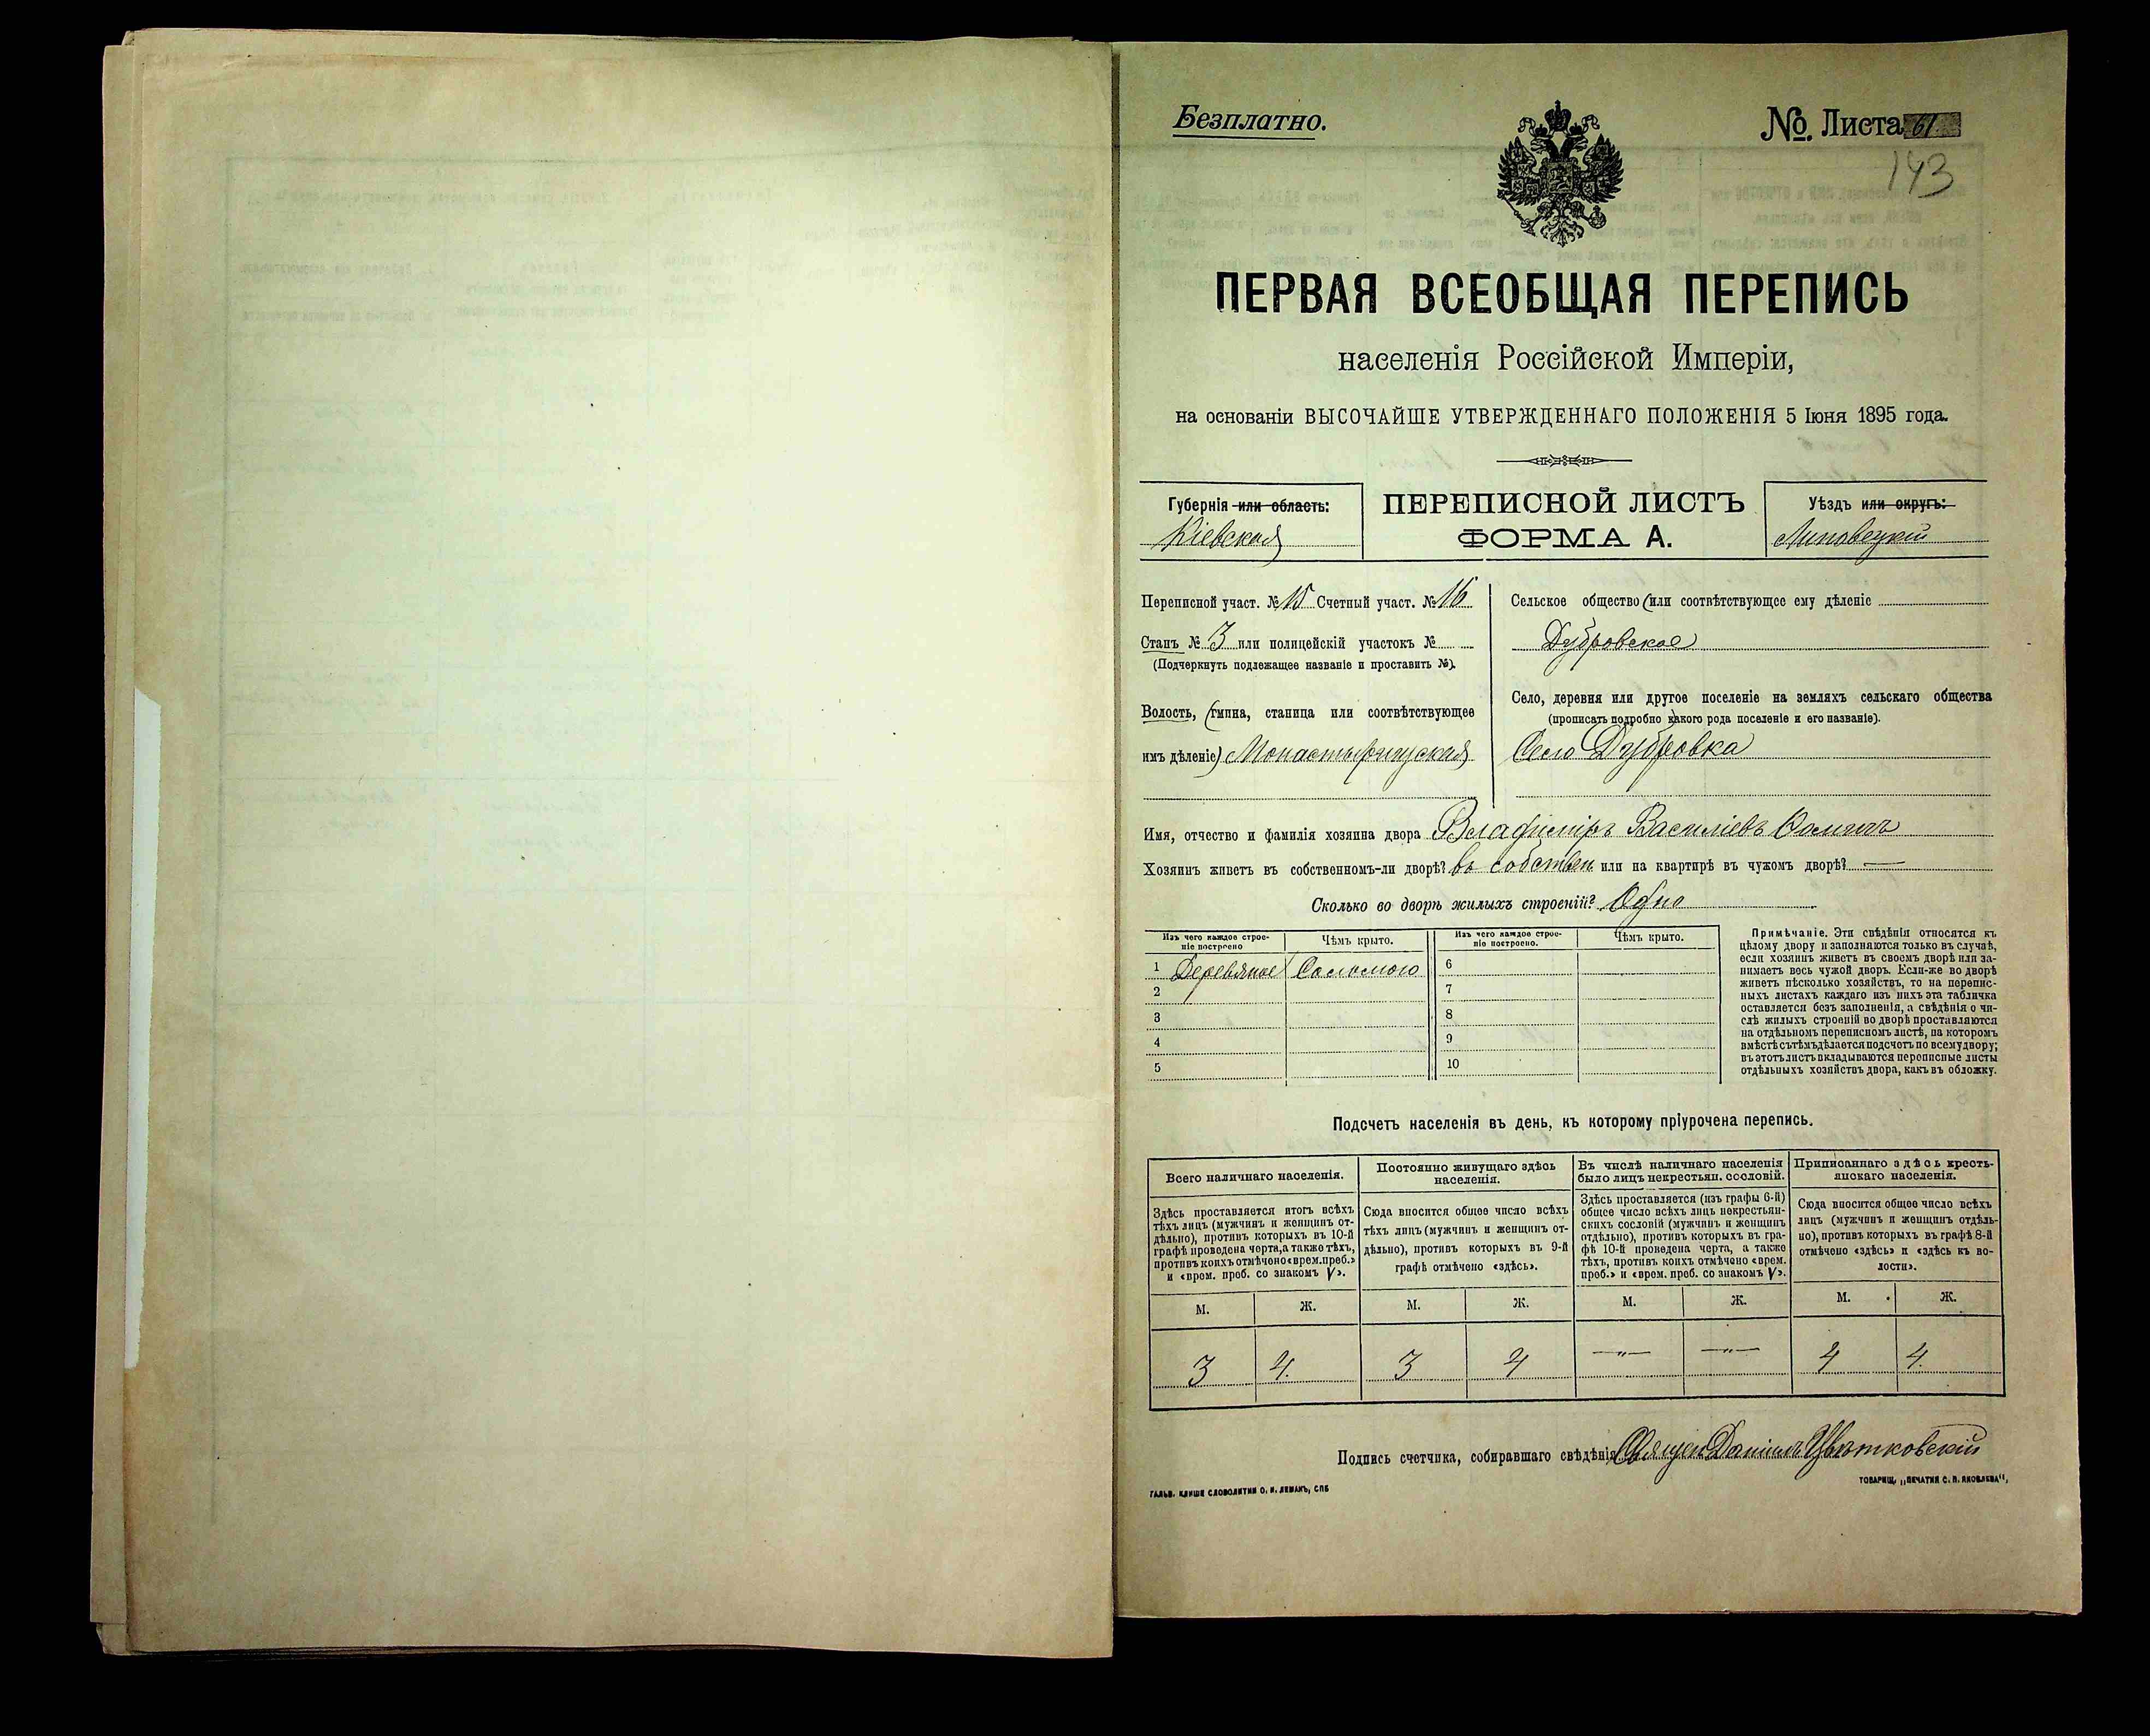 Безплатно.
№. Листа 61
143
ПЕРВАЯ ВСЕОБЩАЯ ПЕРЕПИСЬ
населенія Россійской Имперіи,
на основаніи ВЫСОЧАЙШЕ УТВЕРЖДЕННАГО ПОЛОЖЕНІЯ 5 Іюня 1895 года.
Губернія или область:
Кіевская
ПЕРЕПИСНОЙ ЛИСТЪ
ФОРМА А.
Уѣздъ или округъ:
Липовецкій
Переписной участ. № 15 Счетный участ. № 16
Станъ № 3 или полицейскій участокъ №
(Подчеркнуть подлежащее названіе и проставить №).
Волость, (гмина, станица или соотвѣтствующее
имъ дѣленіе) Монастырищская
Сельское общество (или соотвѣтствующее ему дѣленіе
Дубровское
Село, деревня или другое поселеніе на земляхъ сельскаго общества
(прописать подробно какого рода поселеніе и его названіе).
Село Дубровка
Имя, отчество и фамилія хозяина двора Владиміръ Василіевъ
Хозяинъ живетъ въ собственномъ-ли дворѣ? въ собствен или на квартирѣ въ чужомъ дворѣ? —
Сколько во дворѣ жилыхъ строеній? Одно
Изъ чего каждое строе-
ніе построено
Чѣмъ крыто.
Изъ чего каждое строе-
ніе построено.
Чѣмъ крыто.
1 Деревяное Соломою
2
3
4
5
6
7
8
9
10
Примѣчаніе. Эти свѣдѣнія относятся къ
цѣлому двору и заполняются только въ случаѣ,
если хозяинъ живетъ въ своемъ дворѣ или за-
нимаетъ весь чужой дворъ. Если-же во дворѣ
живетъ нѣсколько хозяйствъ, то на перепис-
ныхъ листахъ каждаго изъ нихъ эта табличка
оставляется безъ заполненія, а свѣдѣнія о чи-
слѣ жилыхъ строеній во дворѣ проставляются
на отдѣльномъ переписномъ листѣ, на которомъ
вмѣстѣ съ тѣмъ дѣлается подсчетъ по всему двору;
въ этотъ листъ вкладываются переписные листы
отдѣльныхъ хозяйствъ двора, какъ въ обложку.
Подсчетъ населенія въ день, къ которому пріурочена перепись.
Всего наличнаго населенія.
Здѣсь проставляется итогъ всѣхъ
тѣхъ лицъ (мужчинъ и женщинъ от-
дѣльно), противъ которыхъ въ 10-й
графѣ проведена черта, а также тѣхъ,
противъ коихъ отмѣчено «врем. преб.»
и «врем. преб. со знакомъ V».
Постоянно живущаго здѣсь
населенія.
Сюда вносится общее число всѣхъ
тѣхъ лицъ (мужчинъ и женщинъ от-
дѣльно), противъ которыхъ въ 9-й
графѣ отмѣчено «здѣсь».
Въ числѣ наличнаго населенія
было лицъ некрестьян. сословій.
Здѣсь проставляется (изъ графы 6-й)
общее число всѣхъ лицъ некрестьян-
скихъ сословій (мужчинъ и женщинъ
отдѣльно), противъ которыхъ въ гра-
фѣ 10-й проведена черта, а также
тѣхъ, противъ коихъ отмѣчено «врем.
преб.» и «врем. преб. со знакомъ V».
Приписаннаго здѣсь кресть-
янскаго населенія.
Сюда вносится общее число всѣхъ
лицъ (мужчинъ и женщинъ отдѣль-
но), противъ которыхъ въ графѣ 8-й
отмѣчено «здѣсь» и «здѣсь къ во-
лости».
М. Ж. М. Ж. М. Ж. М. Ж.
3 4. 3 4 —„— —„— 4 4.
Подпись счетчика, собиравшаго свѣдѣнія Священ Даніилъ Цвѣтковскій
ГАЛЬВ. КЛИШЕ СЛОВОЛИТНИ О. И. ЛЕМАНЪ, СПБ
ТОВАРИЩ. „ПЕЧАТНЯ С. П. ЯКОВЛЕВА",